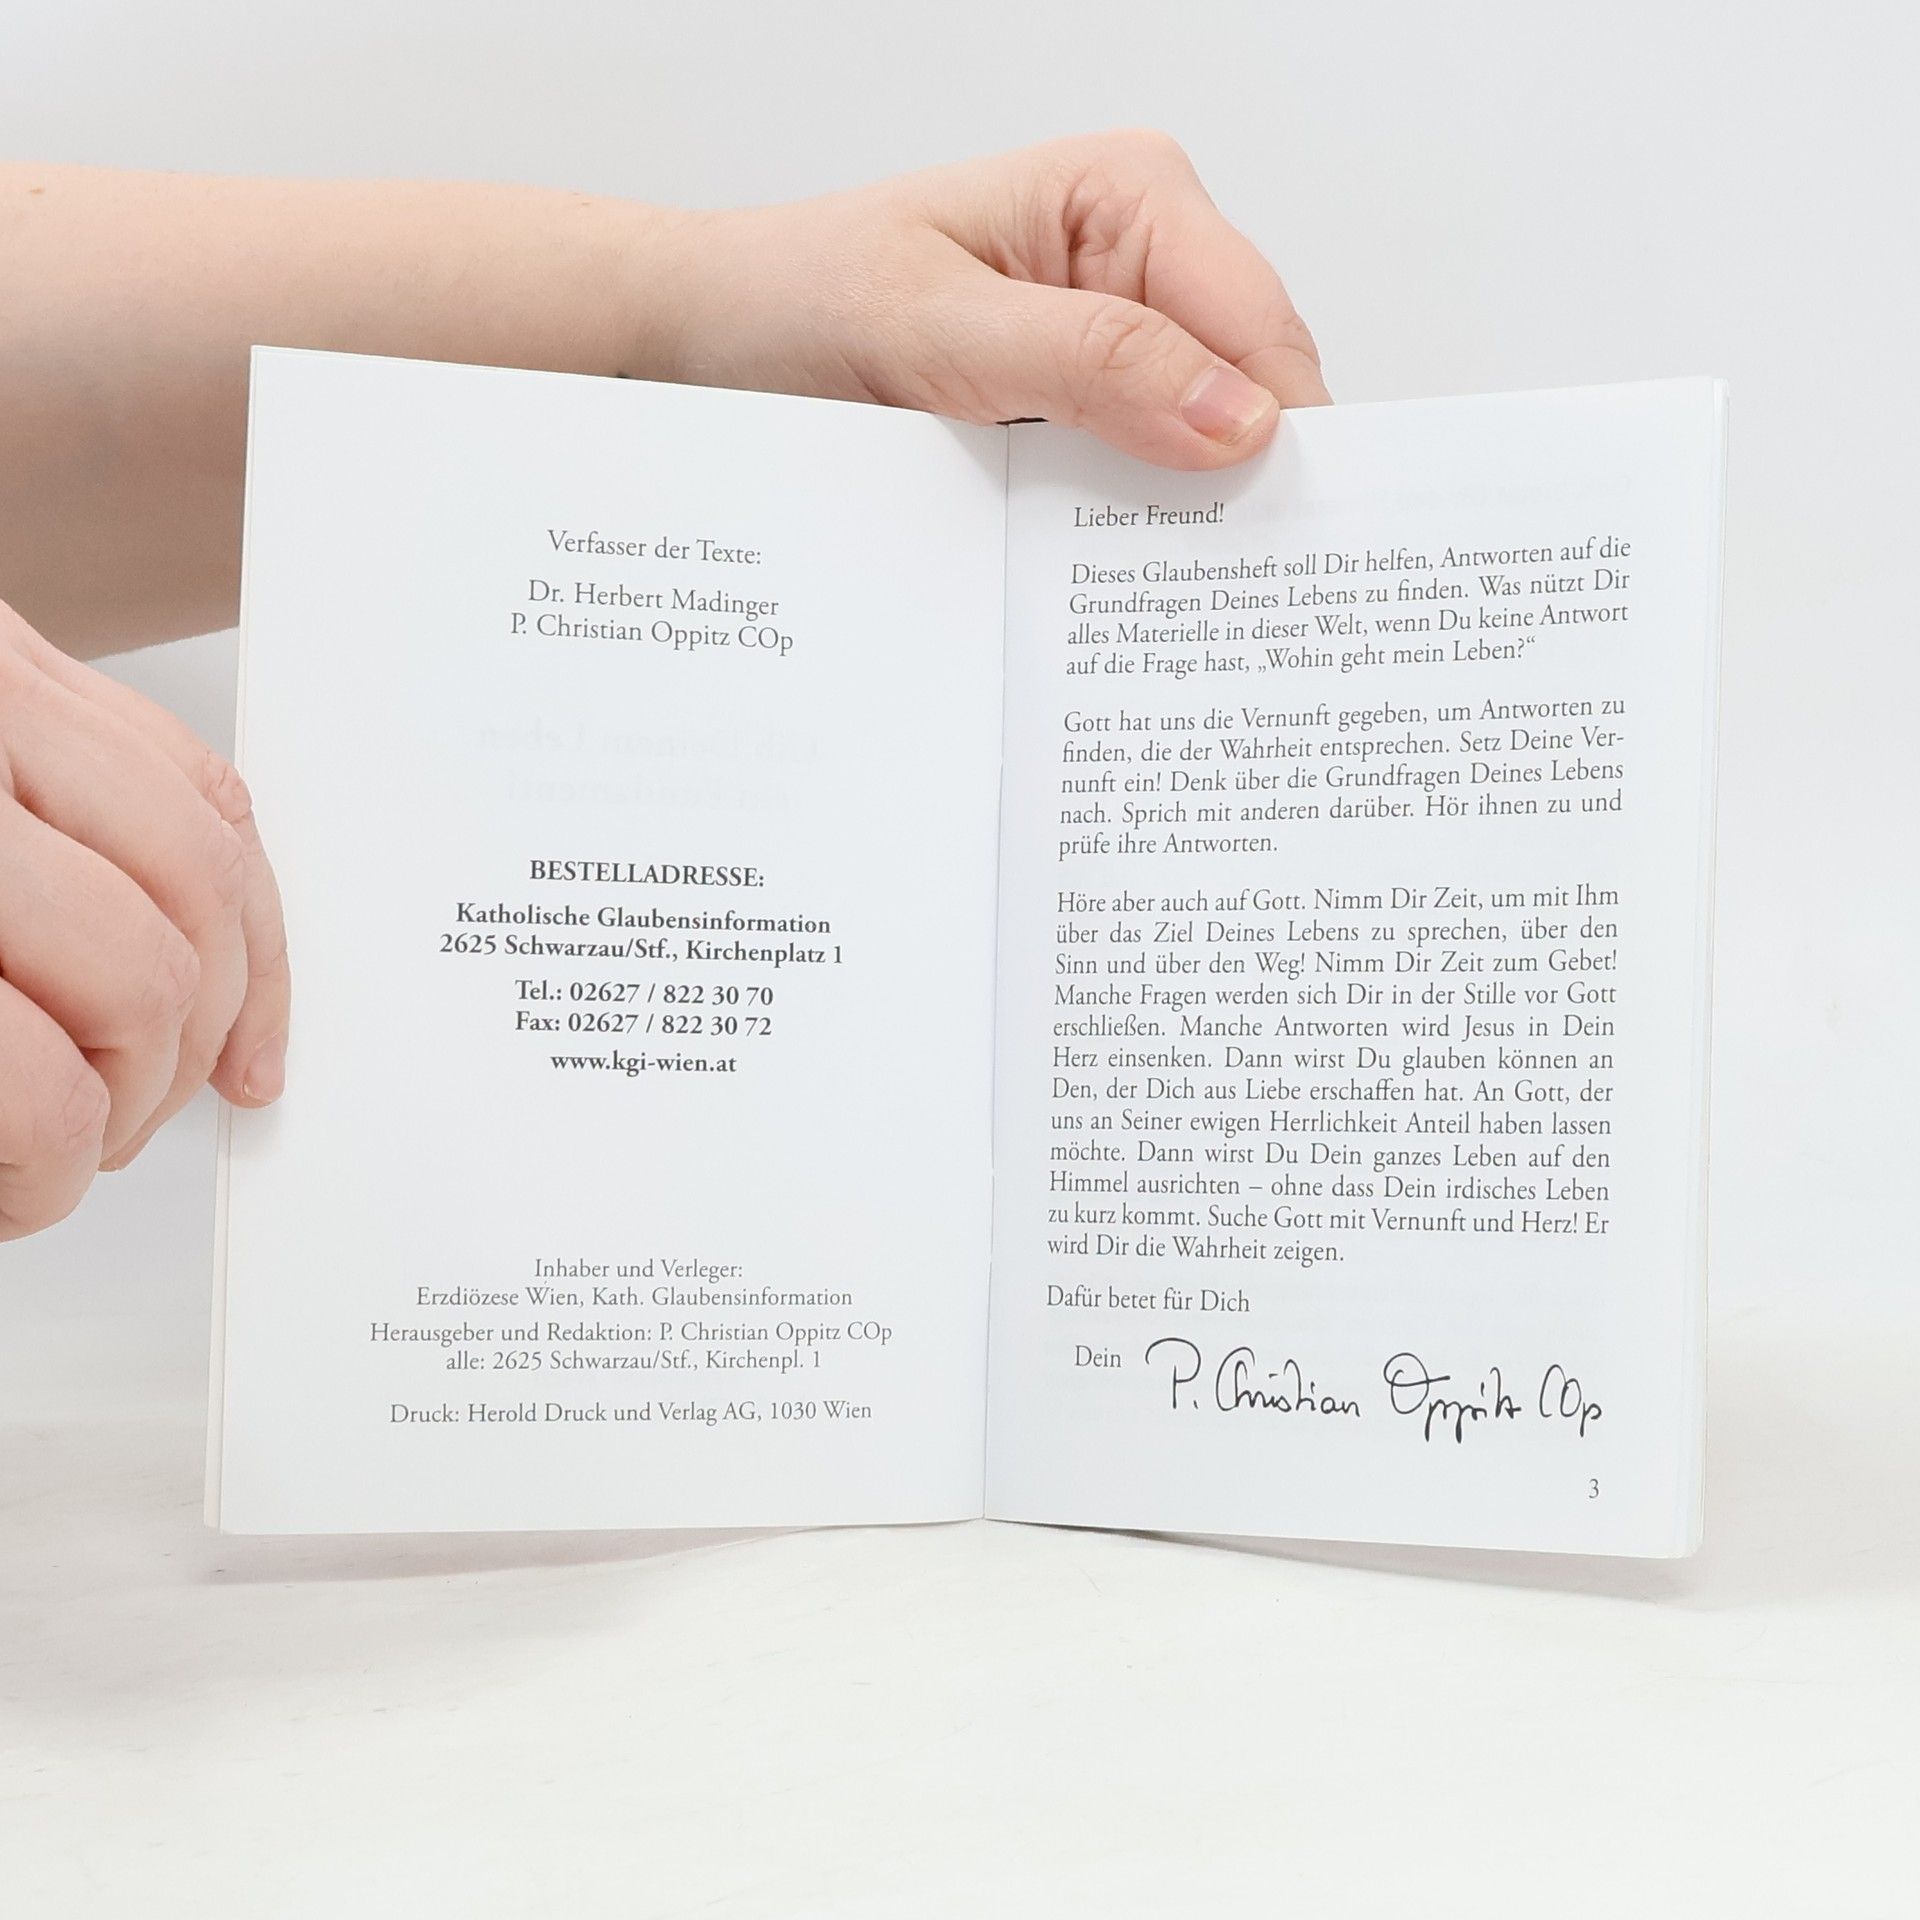 Verfasser der Texte:
Dr. Herbert Madinger
P. Christian Oppitz COp
BESTELLADRESSE:
Katholische Glaubensinformation
2625 Schwarzau/Stf., Kirchenplatz 1
Tel.: 02627 / 822 30 70
Fax: 02627 / 822 30 72
www.kgi-wien.at
Inhaber und Verleger:
Erzdiözese Wien, Kath. Glaubensinformation
Herausgeber und Redaktion: P. Christian Oppitz COp
alle: 2625 Schwarzau/Stf., Kirchenpl. 1
Druck: Herold Druck und Verlag AG, 1030 Wien
Lieber Freund!
Dieses Glaubensheft soll Dir helfen, Antworten auf die
Grundfragen Deines Lebens zu finden. Was nützt Dir
alles Materielle in dieser Welt, wenn Du keine Antwort
auf die Frage hast, „Wohin geht mein Leben?“
Gott hat uns die Vernunft gegeben, um Antworten zu
finden, die der Wahrheit entsprechen. Setz Deine Ver-
nunft ein! Denk über die Grundfragen Deines Lebens
nach. Sprich mit anderen darüber. Hör ihnen zu und
prüfe ihre Antworten.
Höre aber auch auf Gott. Nimm Dir Zeit, um mit Ihm
über das Ziel Deines Lebens zu sprechen, über den
Sinn und über den Weg! Nimm Dir Zeit zum Gebet!
Manche Fragen werden sich Dir in der Stille vor Gott
erschließen. Manche Antworten wird Jesus in Dein
Herz einsenken. Dann wirst Du glauben können an
Den, der Dich aus Liebe erschaffen hat. An Gott, der
uns an Seiner ewigen Herrlichkeit Anteil haben lassen
möchte. Dann wirst Du Dein ganzes Leben auf den
Himmel ausrichten – ohne dass Dein irdisches Leben
zu kurz kommt. Suche Gott mit Vernunft und Herz! Er
wird Dir die Wahrheit zeigen.
Dafür betet für Dich
Dein P. Christian Oppitz COp
3